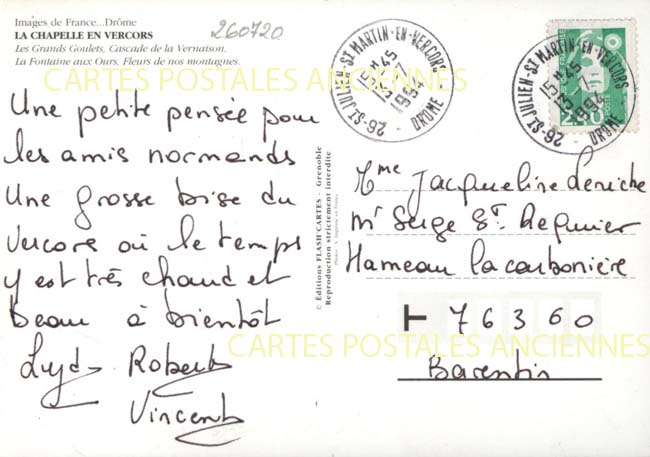 Images de France...Drôme
LA CHAPELLE EN VERCORS
Les Grands Goulets, Cascade de la Vernaison,
La Fontaine aux Ours, Fleurs de nos montagnes.
260720
CARTES POSTALES ANCIENNES
Une petite pensée pour
les amis normands
Une grosse bise du
Vercors où le temps
y est très chaud et
beau à bientôt
Robert
Vincent
© Éditions FLASH'CARTES - Grenoble
Reproduction strictement interdite
26-ST-JULIEN-ST MARTIN-EN-VERCORS
15H45
1994
DRÔME
26-ST-JULIEN-ST MARTIN-EN-VERCORS
15H45
1994
DRÔME
2,80
Mme Jacqueline
Mr Serge St Requier
Hameau la carbonière
T 76360
Barentin
CARTES POSTALES ANCIENNES